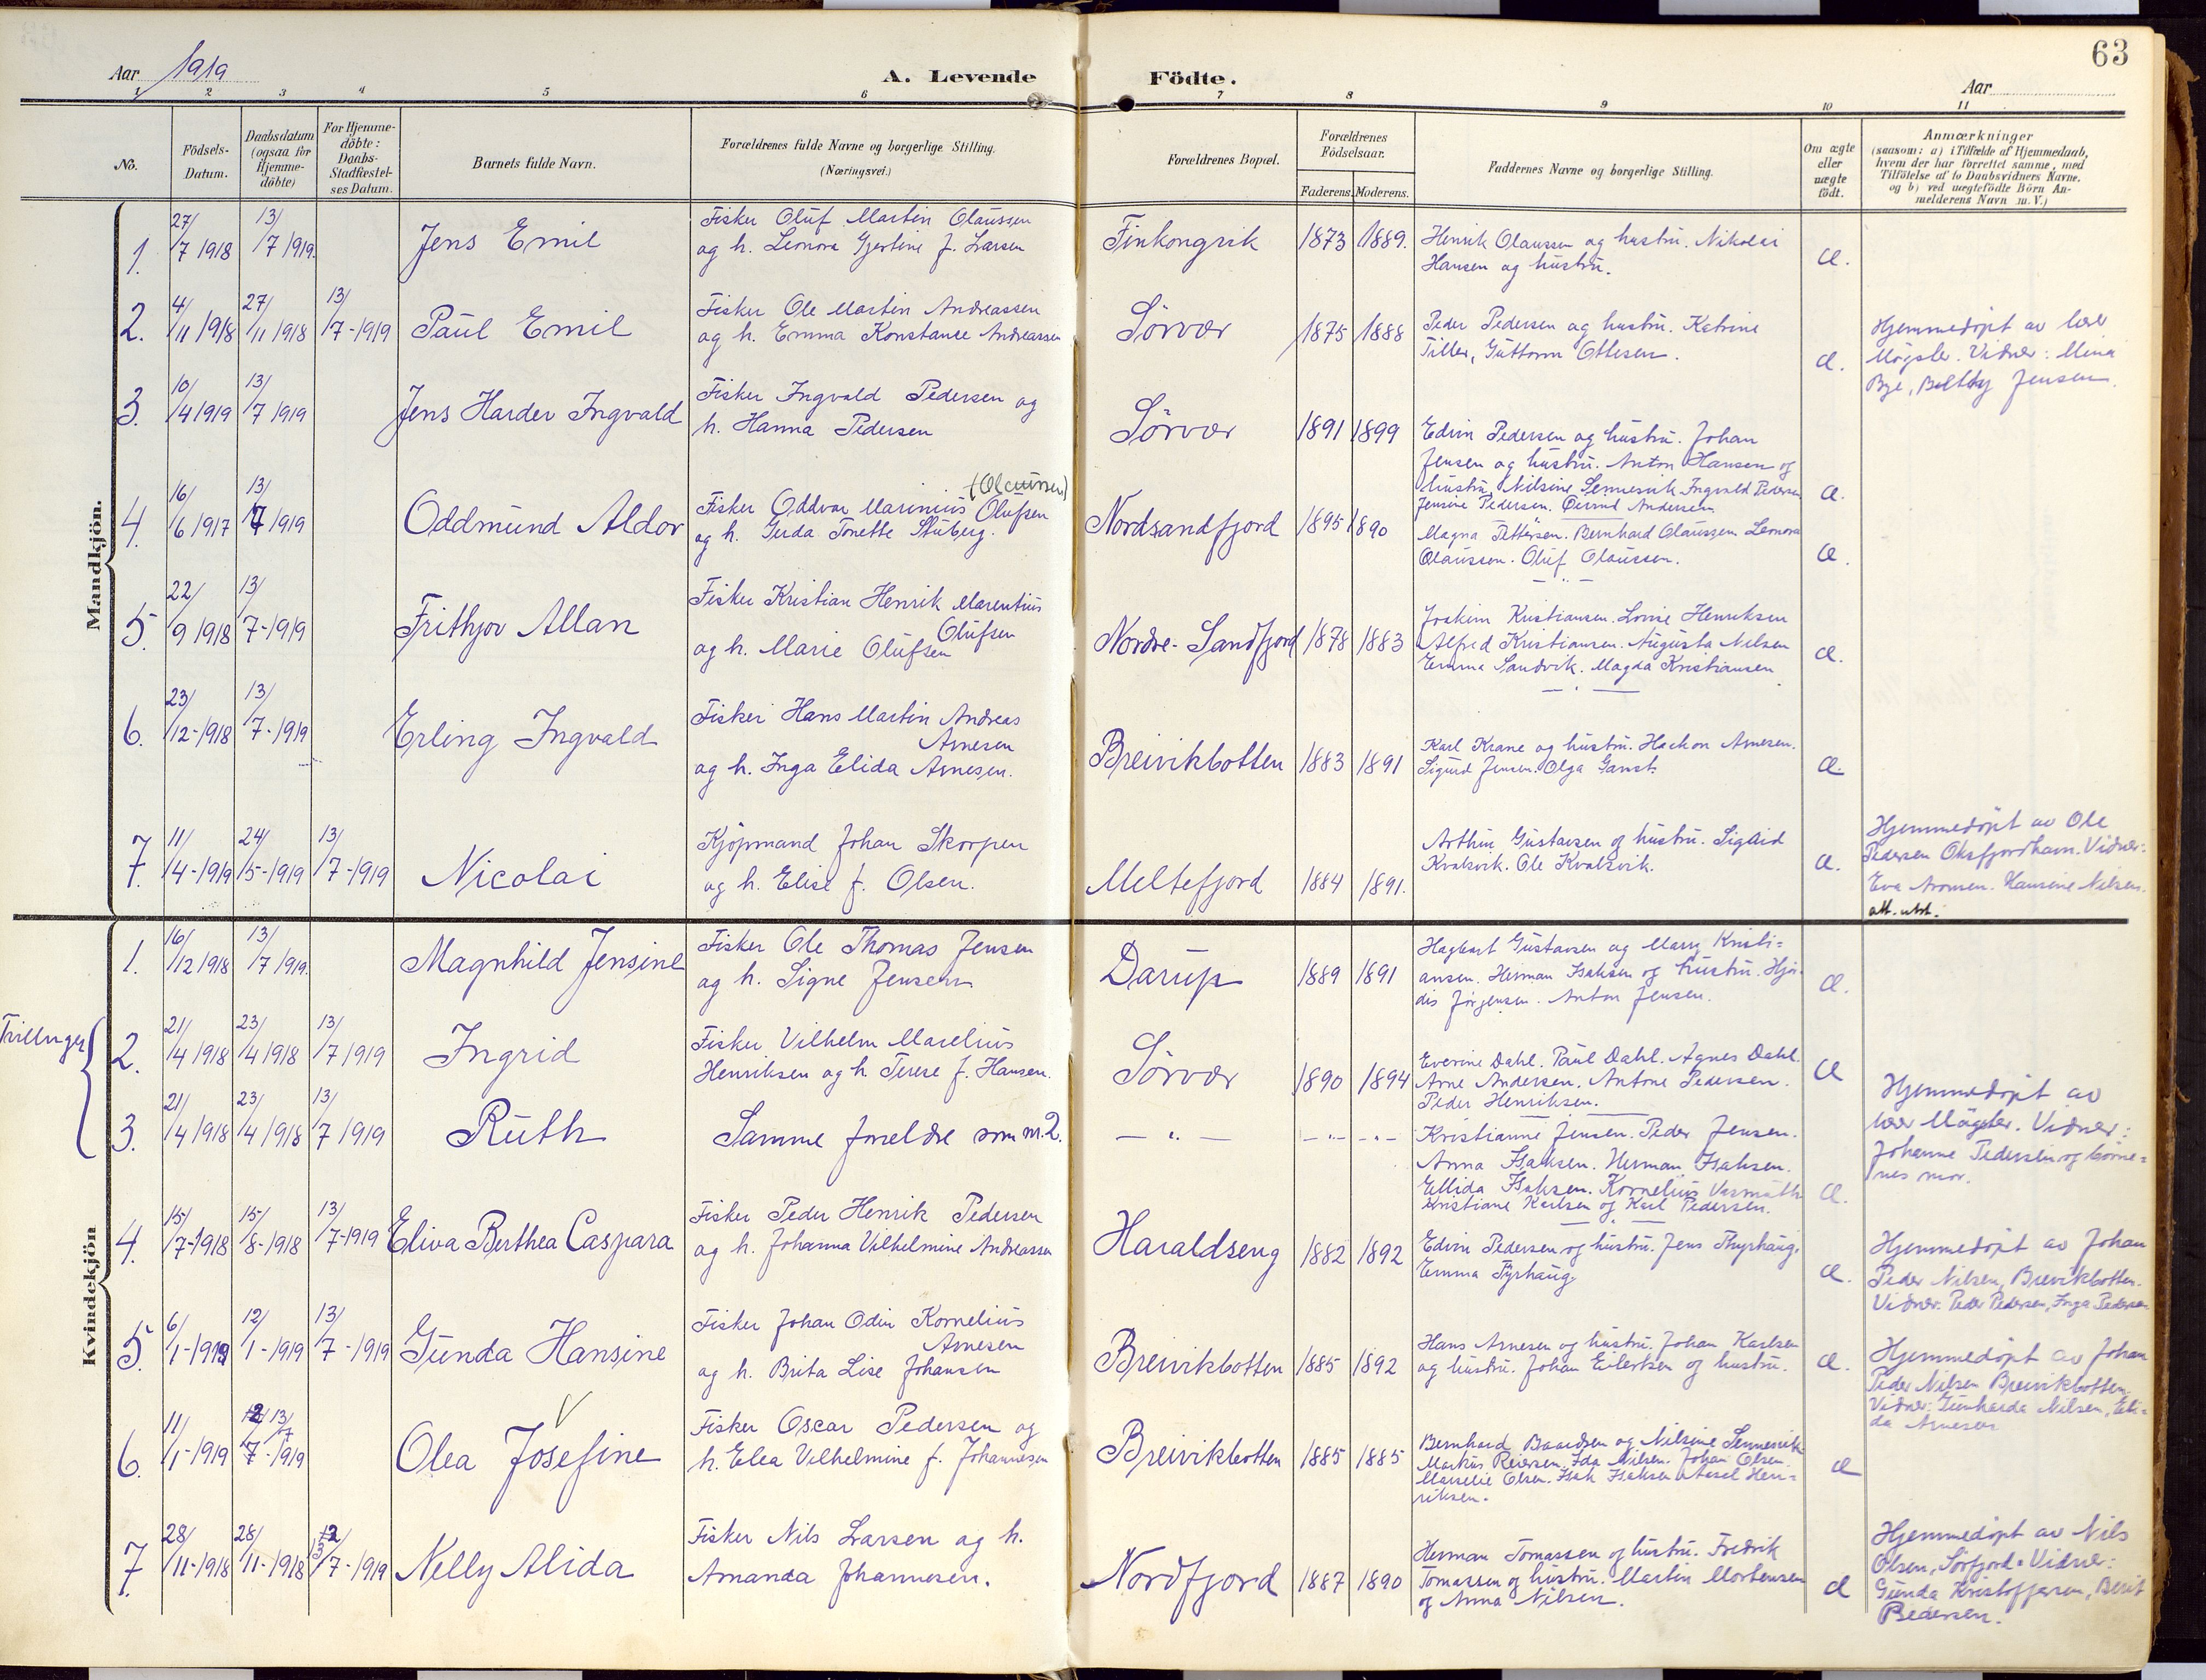 63
Aar 1919
A. Levende Födte.
Aar
1 2 3 4 5 6 7 8 9 10 11
No.
Födsels-Datum.
Daabsdatum (ogsaa for Hjemme-döbte)
For Hjemme-döbte: Daabs-Stadfæstel-ses Datum.
Barnets fulde Navn.
Forældrenes fulde Navne og borgerlige Stilling.
(Næringsvei.)
Forældrenes Bopæl.
Forældrenes Födselsaar.
Faderens. Moderens.
Faddernes Navne og borgerlige Stilling.
Om ægte eller uægte födt.
Anmærkninger
(saasom: a) i Tilfælde af Hjemmedaab,
hvem der har forrettet samme, med
Tilföielse af to Daabsvidners Navne.
og b) ved uegtefödte Börn An-
melderens Navn m. V.)
Mandkjön.
1. 27/7 1918 13/7 1919. Jens Emil
Fisker Oluf Martin Olaussen
og h. Leonora Gjertine f. Larsen
Finkongsik 1873 1889.
Henrik Olaussen og hustru. Nikolai
Hansen og hustru.
Æ.
2. 4/11 1918 27/11 1918 13/7-1919 Paul Emil
Fisker Ole Martin Andreassen
og h. Emma Konstanse Andreassen
Sörvær 1875 1888
Peder Pedersen og hustru. Katrine
Tiller, Guttorm Ottesen.
Æ.
Hjemmedöpt av lærer
Mögster. Vidner: Mina
Bye, Jensen.
3. 10/4 1919 13/7 1919 Jens Harder Ingvald
Fisker Ingvald Pedersen og
h. Hanna Pedersen
Sörvær 1891 1899
Edvin Pedersen og hustru. Johan
Jensen og hustru. Anton Hansen og
hustru, Nilsine Sennesvik Ingvald Pedersen
Jensine Pedersen. Öivind Andersen
Æ.
4. 16/6 1917 13/7 1919 Oddmund Aldor
(Olaussen)
Fisker Oddvar Marinius Olufsen
og h. Gerda Tonette Stuberg.
Nordsandfjord 1895 1890
Magna Pettersen. Bernhard Olaussen Leonora
Olaussen. Oluf Olaussen.
Æ.
5. 22/9 1918 13/7-1919 Frithjov Allan
Fisker Kristian Henrik Marentius
Olufsen
og h. Marie Olufsen
Nordre-Sandfjord 1878 1883
Joakim Kristiansen. Lovise Henriksen
Alfred Kristiansen. Augusta Nilsen
Emma Sandvik. Magda Kristiansen
Æ.
6. 23/12-1918 13/7-1919 Erling Ingvald
Fisker Hans Martin Andreas
Arnesen
og h. Inga Elida Arnesen.
Breivikbotten 1883 1891
Karl Krane og hustru. Haakon Arnesen.
Sigurd Jensen. Olga Ganst.
Æ.
7. 11/4-1919 24/5-1919 13/7-1919 Nicolai
Kjöpmand Johan Skorpen
og h. Elise f. Olsen.
Meltefjord 1884 1891.
Arthur Gustavsen og hustru. Sigrid
Kvalsvik. Ole Kvalsvik.
Æ.
Hjemmedöpt av Ole
Pedersen Oksfjordhavn. Vidner:
Eva Aronsen. Hansine Nilsen.
att. utst.
Kvindekjön
1. 16/12 1918 13/7 1919. Magnhild Jensine
Fisker Ole Thomas Jensen
og h. Signe Jensen
Darup 1889 1891
Hagbart Gustavsen og Mary Kristi=
ansen. Herman Isaksen og hustru. Hjör-
dis Jörgensen. Anton Jensen.
Æ.
Tvillinger
2. 21/4 1918 23/4 1918 13/7 1919 Ingrid
Fisker Vilhelm Marelius
Henriksen og h. Terese f. Hansen.
Sörvær 1890 1894
Everine Dahl. Paul Dahl. Agnes Dahl.
Arne Andersen. Antone Pedersen.
Peder Henriksen.
Æ
3. 21/4 1918 23/4 1918 13/7 1919 Ruth
Samme forældre som nr. 2.
— " — — " — — " —
Kristianne Jensen. Peder Jensen.
Anna Isaksen. Herman Isaksen.
Ellida Isaksen. Kornelius Varmuth
Kristiane Karlsen og Karl Pedersen.
Æ.
Hjemmedöpt av
lærer Mögster. Vidner:
Johanne Pedersen og börne=
nes mor.
4. 15/7-1918 15/8-1918 13/7-1919 Eliva Berthea Caspara
Fisker Peder Henrik Pedersen
og h. Johanna Vilhelmine Andreassen
Haraldseng 1882 1892
Edvin Pedersen og hustru. Jens Thyrhaug.
Emma Tyrhaug.
Æ.
Hjemmedöpt av Johan
Peder Nilsen, Breivikbotten.
Vidner: Peder Pedersen, Inga Pedersen
5. 6/1-1919 12/1-1919 13/7-1919 Gunda Hansine
Fisker Johan Odin Kornelius
Arnesen
og h. Brita Lise Johansen
Breivikbotten 1885 1892
Hans Arnesen og hustru. Johan Karlsen
og hustru. Johan Eilertsen og hustru.
Æ.
Hjemmedöpt av Johan
Peder Nilsen Breivikbotten.
Vidner: Gunharda Nilsen, Eli=
da Arnesen
6. 11/1-1919 13/7-1919 Olea Josefine
Fisker Oscar Pedersen og
h. Elea Vilhelmine f. Johannesen
Breivikbotten 1885 1885
Bernhard Baardsen og Nilsine Sennesvik
Markus Reiersen. Ida Nilsen. Johan Olsen.
Marselie Olsen. Isak Isaksen Aksel Hen=
riksen.
Æ
7. 28/11-1918 28/11-1918 13/7-1919 Nelly Alida
Fisker Nils Larsen og h.
Amanda Johannesen.
Nordfjord 1887 1890
Herman Tomassen og hustru. Fredrik
Tomassen og hustru. Martin Mortensen
og Anna Nilsen.
Æ
Hjemmedöpt av Nils
Olsen, Sörfjord. Vidner:
Gunda Kristoffersen, Berit
Pedersen.